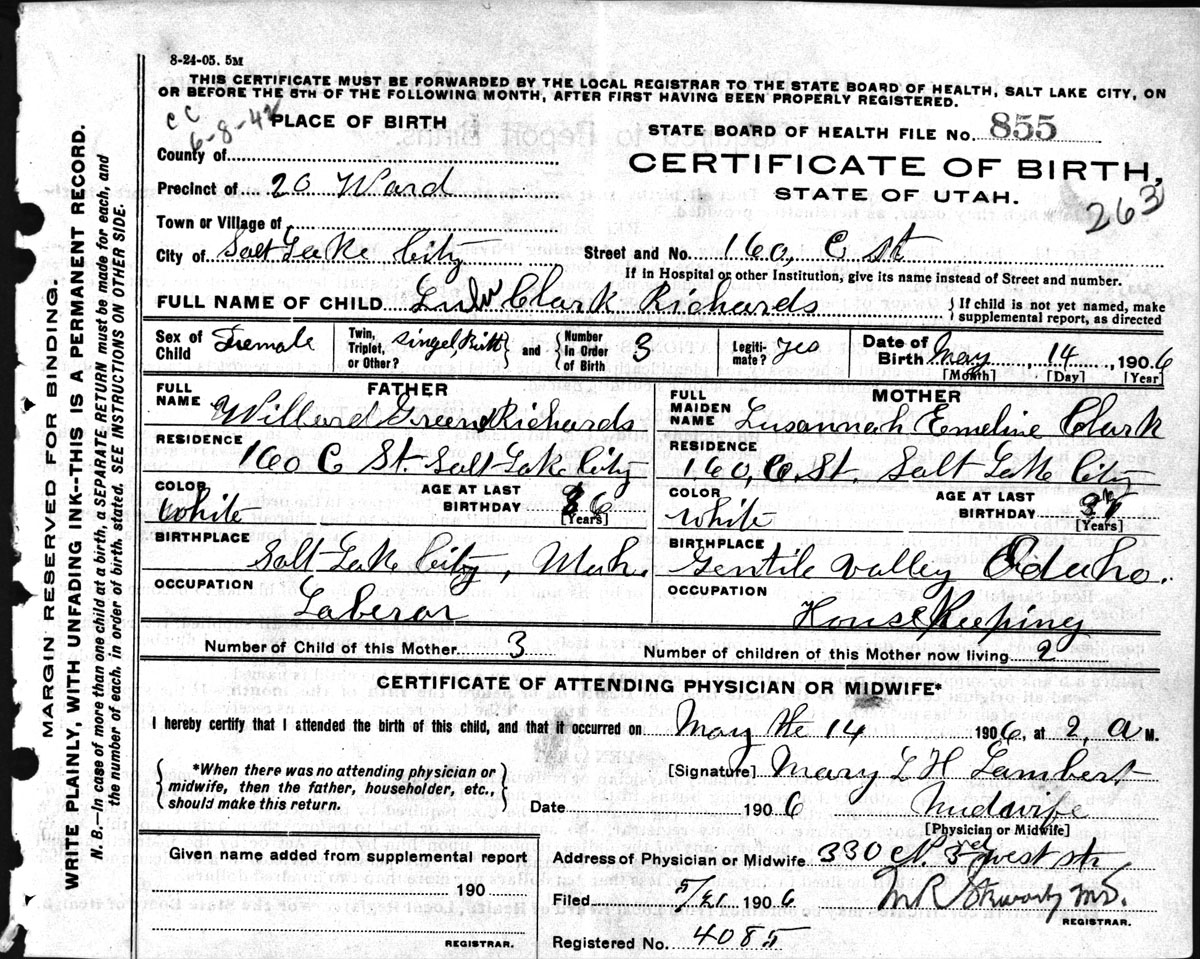 8-24-05. 5M
THIS CERTIFICATE MUST BE FORWARDED BY THE LOCAL REGISTRAR TO THE STATE BOARD OF HEALTH, SALT LAKE CITY, ON
OR BEFORE THE 5TH OF THE FOLLOWING MONTH, AFTER FIRST HAVING BEEN PROPERLY REGISTERED.
CC
6-8-42
PLACE OF BIRTH
STATE BOARD OF HEALTH FILE No. 855
County of
CERTIFICATE OF BIRTH,
Precinct of 20 Ward
STATE OF UTAH.
263
Town or Village of
City of Salt Lake City Street and No. 160, C St
If in Hospital or other Institution, give its name instead of Street and number.
FULL NAME OF CHILD Clark Richards {If child is not yet named, make supplemental report, as directed
Sex of Child Female Twin, Triplet, or Other? Singel, Birth} and {Number in Order of Birth 3 Legiti-mate? yes Date of Birth May 14 1906
[Month] [Day] [Year]
FATHER MOTHER
FULL NAME Willard Greene Richards FULL MAIDEN NAME Lusannah Emeline Clark
RESIDENCE 160 C St. Salt Lake City RESIDENCE 160, C. St. Salt Lake City
COLOR White AGE AT LAST BIRTHDAY [Years] COLOR White AGE AT LAST BIRTHDAY [Years]
BIRTHPLACE Salt Lake City, Utah. BIRTHPLACE Gentile Valley Odaho.
OCCUPATION Laberar OCCUPATION House Keeping
Number of Child of this Mother 3 Number of children of this Mother now living 2
CERTIFICATE OF ATTENDING PHYSICIAN OR MIDWIFE*
I hereby certify that I attended the birth of this child, and that it occurred on May the 14 1906, at 2, a M.
{*When there was no attending physician or midwife, then the father, householder, etc., should make this return.}
[Signature] Mary L H Lambert
Date 1906 Midwife
[Physician or Midwife]
Given name added from supplemental report
Address of Physician or Midwife 330 N. 3rd west str
190
Filed 5/21 1906 M.D.
REGISTRAR.
REGISTRAR.
Registered No. 4085
MARGIN RESERVED FOR BINDING.
WRITE PLAINLY, WITH UNFADING INK--THIS IS A PERMANENT RECORD.
N. B.—In case of more than one child at a birth, a SEPARATE RETURN must be made for each, and
the number of each, in order of birth, stated. SEE INSTRUCTIONS ON OTHER SIDE.